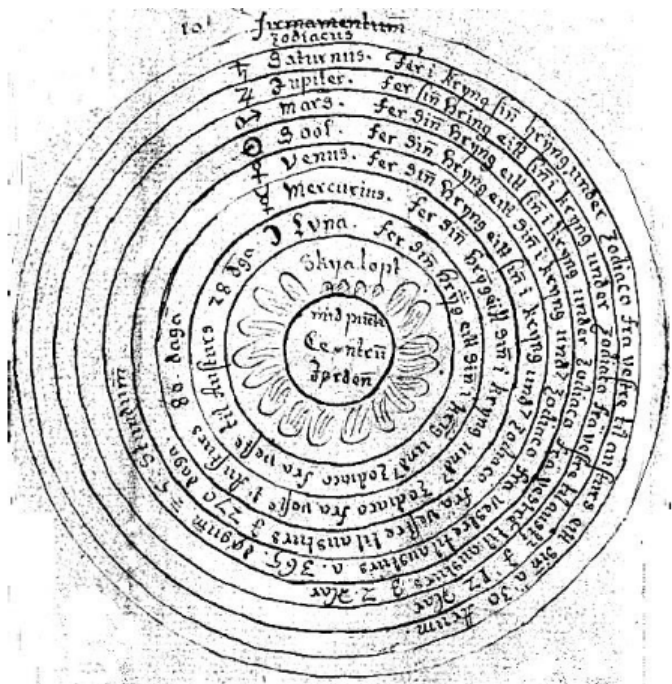 101
firmamentum
zodiacus
♄ Saturnus. Fer i kryng sin hryng under zodiaco fra vestre til austurs eitt sin a 30 Arum
♃ Jupiter. fer sin hring eitt sin i kryng under zodiaco fra vestre til austurs J 12 Aar
♂ Mars. fer sin hryng eitt sin i kryng under zodiaco fra vestre til austurs J 2 Aar
☉ Sool. fer sin hryng eitt sin i kryng under zodiaco fra vestre til austurs a 365 døgum 5 Stundum
♀ Venus. fer sin hryng eitt sin i kryng und zodiaco fra vestre til austurs J 270 daga.
☿ Mercurius. fer sin hryg eitt sin i kryng und zodiaco fra vestre til austurs 80. daga.
☽ Luna. fer sin hryg eitt sin i kryng und zodiaco fra veste til austurs 28 dga.
Skyalopt
mid punt
Centru
Jorden